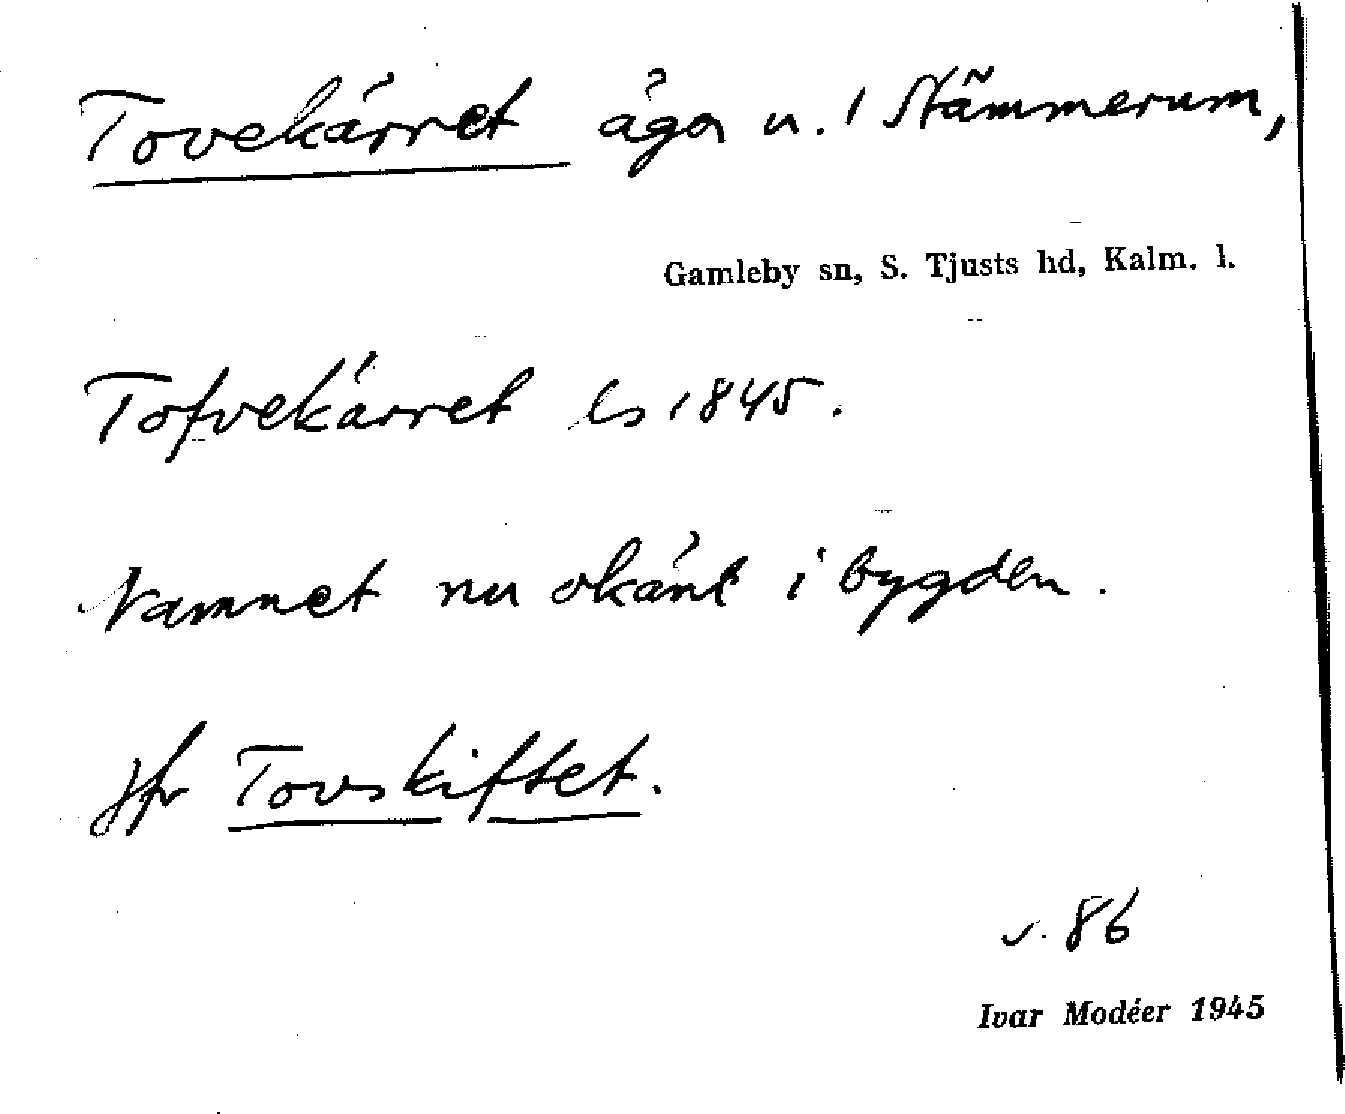 Tovekärret äga u. 1 Stämmerum,
Gamleby sn, S. Tjusts hd, Kalm. l.
Tofvekärret Ls 1845.
Namnet nu okänt i bygden.
Jfr Tovskiftet.
s. 86
Ivar Modéer 1945